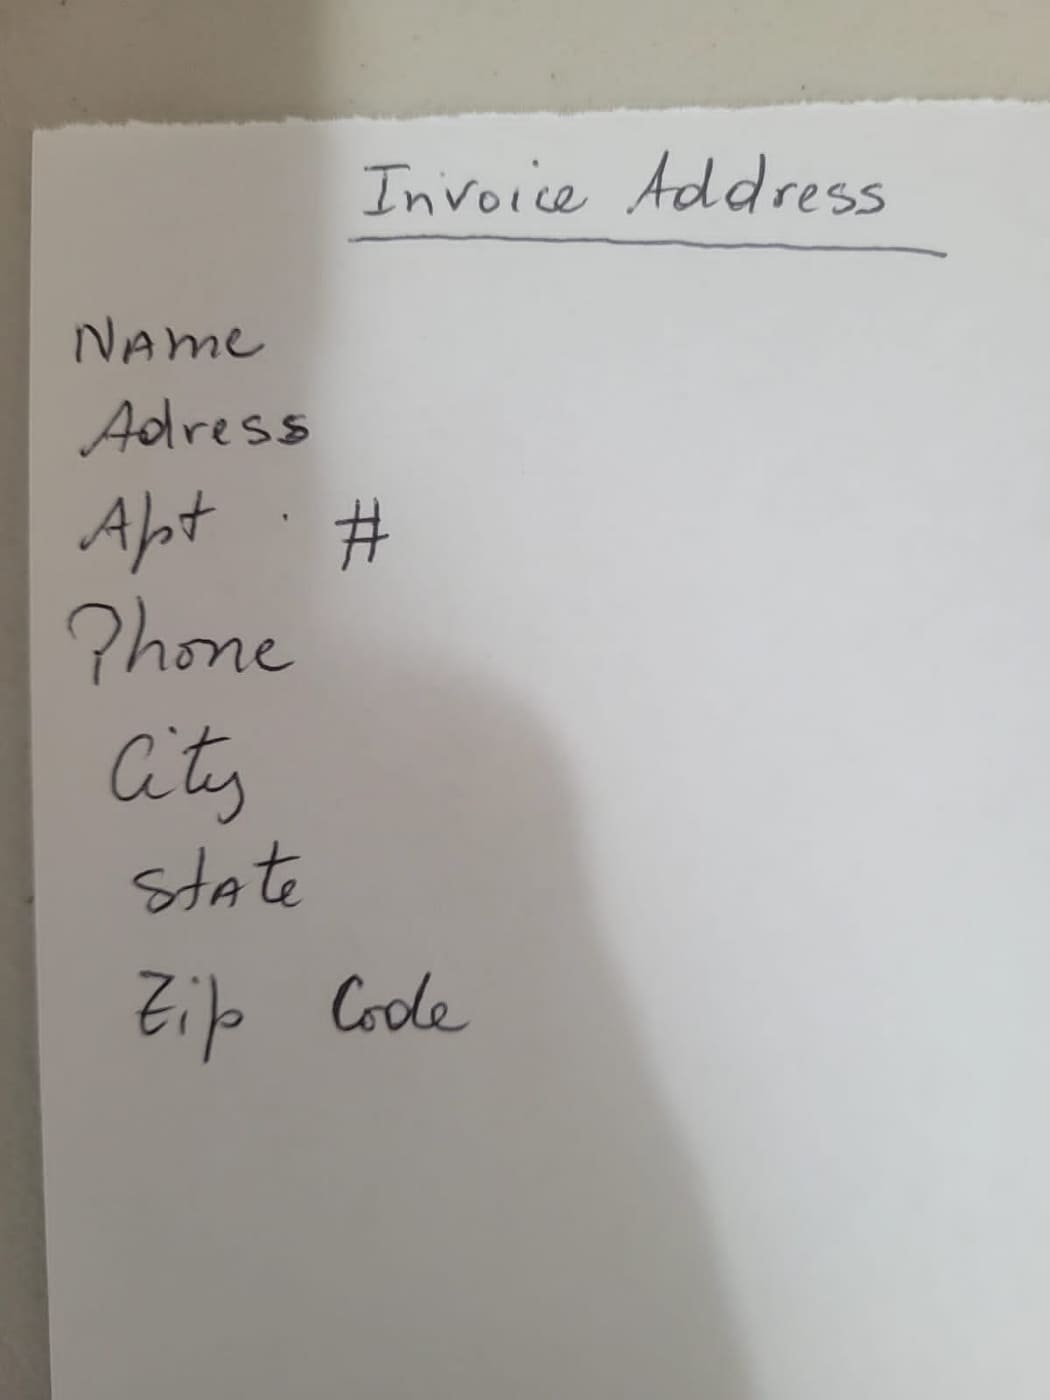 Invoice Address
Name
Adress
Apt . #
Phone
City
State
Zip Code